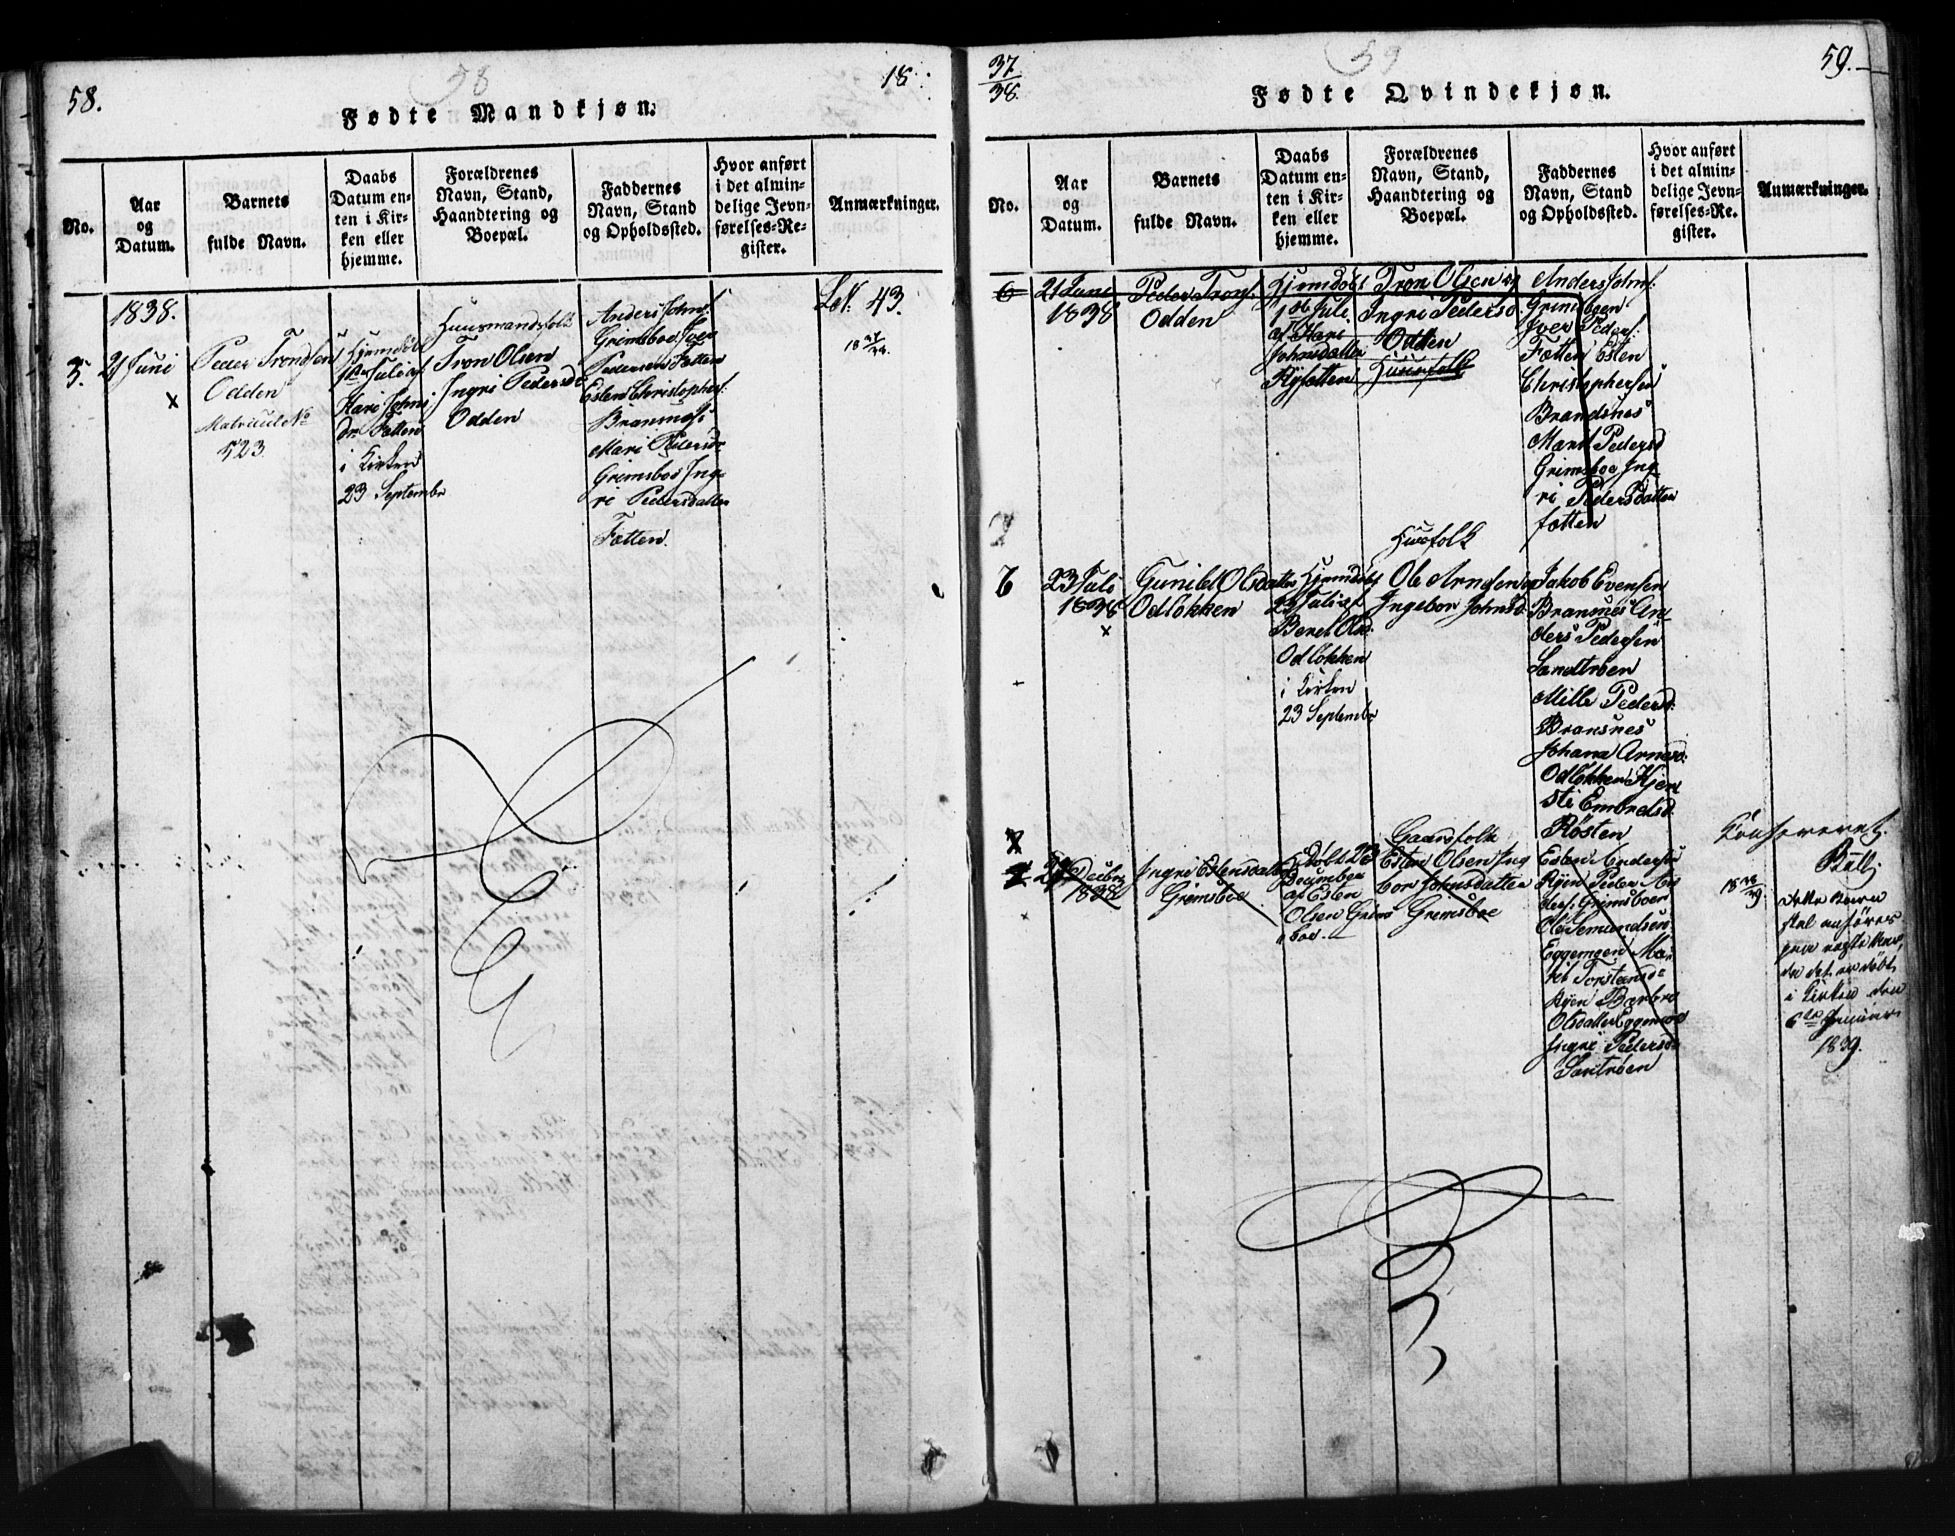 58.
58
18
Fødte Mandkjøn.
No.
Aar
og
Datum.
Barnets
fulde Navn.
Daabs
Datum en-
ten i Kir-
ken eller
hjemme.
Forældrenes
Navn, Stand,
Haandtering og
Boepæl.
Faddernes
Navn, Stand
og Opholdssted.
Hvor anført
i det almin-
delige Jevn-
førelses-Re-
gister.
Anmærkninger.
1838.
5.
21 Juni
x
Peder Trondsen
Odden
Matricul No
523
Hjemdöbt
1ste Juli af
Mari Johns
dr. Fætten
i Kirken
23 Septembr
Huusmandsfolk
Tron Olsen
Ingri Pedersd
Odden
Anders Johns.
Grimsboe Iver
Pedersen Fætten
Esten Christophers.
Bransnes
Mari Pedersdr
Grimsboe Ing-
ri Pedersdatter
Fætten.
43.
37
38.
59
59.
Fødte Qvindekjøn.
No.
Aar
og
Datum.
Barnets
fulde Navn.
Daabs
Datum en-
ten i Kir-
ken eller
hjemme.
Forældrenes
Navn, Stand,
Haandtering og
Boepæl.
Faddernes
Navn, Stand
og Opholdssted.
Hvor anført
i det almin-
delige Jevn-
førelses-Re-
gister.
Anmærkninger.
6
21 Juni
1838
Peder Trons.
Odden
Hjemdöbt
1ste Juli
af Mari
Johnsdatter
Tron Olsen og
Ingri Pedersd.
Odden
Huusfolk
Anders Johns.
Grimsboen
Iver Peders.
Fætten Esten
Christophersen
Brandsnes
Marit Pedersd
Grimsboe Ing-
ri Pedersdatter
fætten
6
23 Juli
1838
x
Gunild Olsdatter
Odlökken
Hjemdöbt
23 Juli af
Beret Ols.
Odlökken
i Kirken
23 Septembr
Huusfolk
Ole Arnesen og
Ingebor Johnsd.
Jakob Evensen
Bransnes An-
ders Pedersen
Sandtröen
Mille Pedersd.
Bransnes
Johana Arnesd.
Odlökken Kjer
sti Embretsd.
Rösten
Decbr
1838
Ingri Estensdatter
Grimsboe
Döbt 23
December
af Esten
Olsen Grims
boe.
Gaardfolk
Esten Olsen Ing
bor Johnsdatter
Grimsboe
Esten Anders
Ryen Peder An
ders. Grimsboen
Ole Semundsen
Eggemoen Ma-
rit Torstensd.
Ryen Barbro
Olsdatter Eggemoen
Ingri Pedersd.
Santröen
Bull.
dette Barn
skal anföres
paa næste Aar,
da det er döbt
i Kirken den
6te Januar
1839.